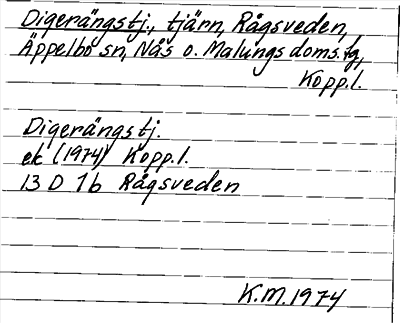 Digerängstj., tjärn, Rågsveden,
Äppelbo sn, Nås o. Malungs doms.fg,
Kopp.l.
Digerängstj.
ek (1974) Kopp.l.
13 D 7b Rågsveden
K.M. 1974